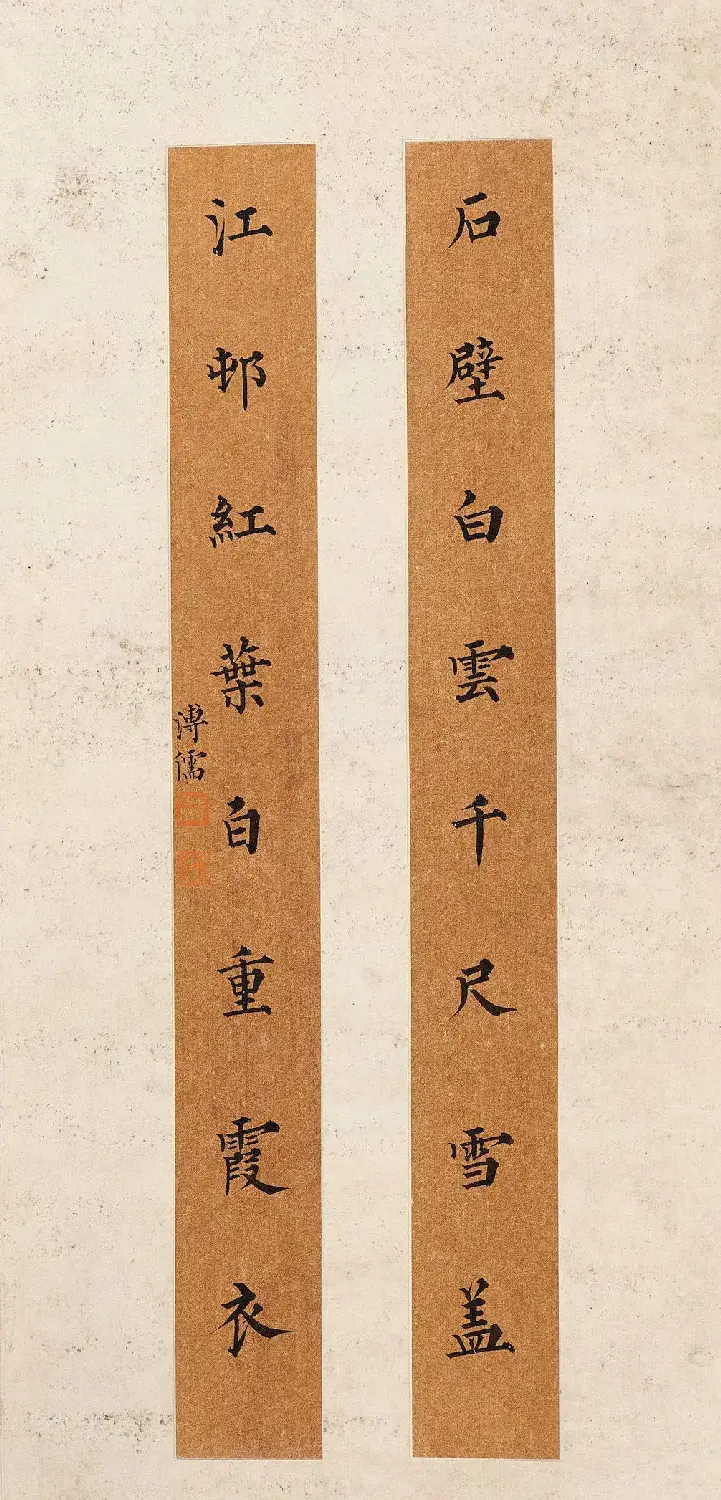 石壁白雲千尺雪盖
江邨紅葉百重霞衣
溥儒